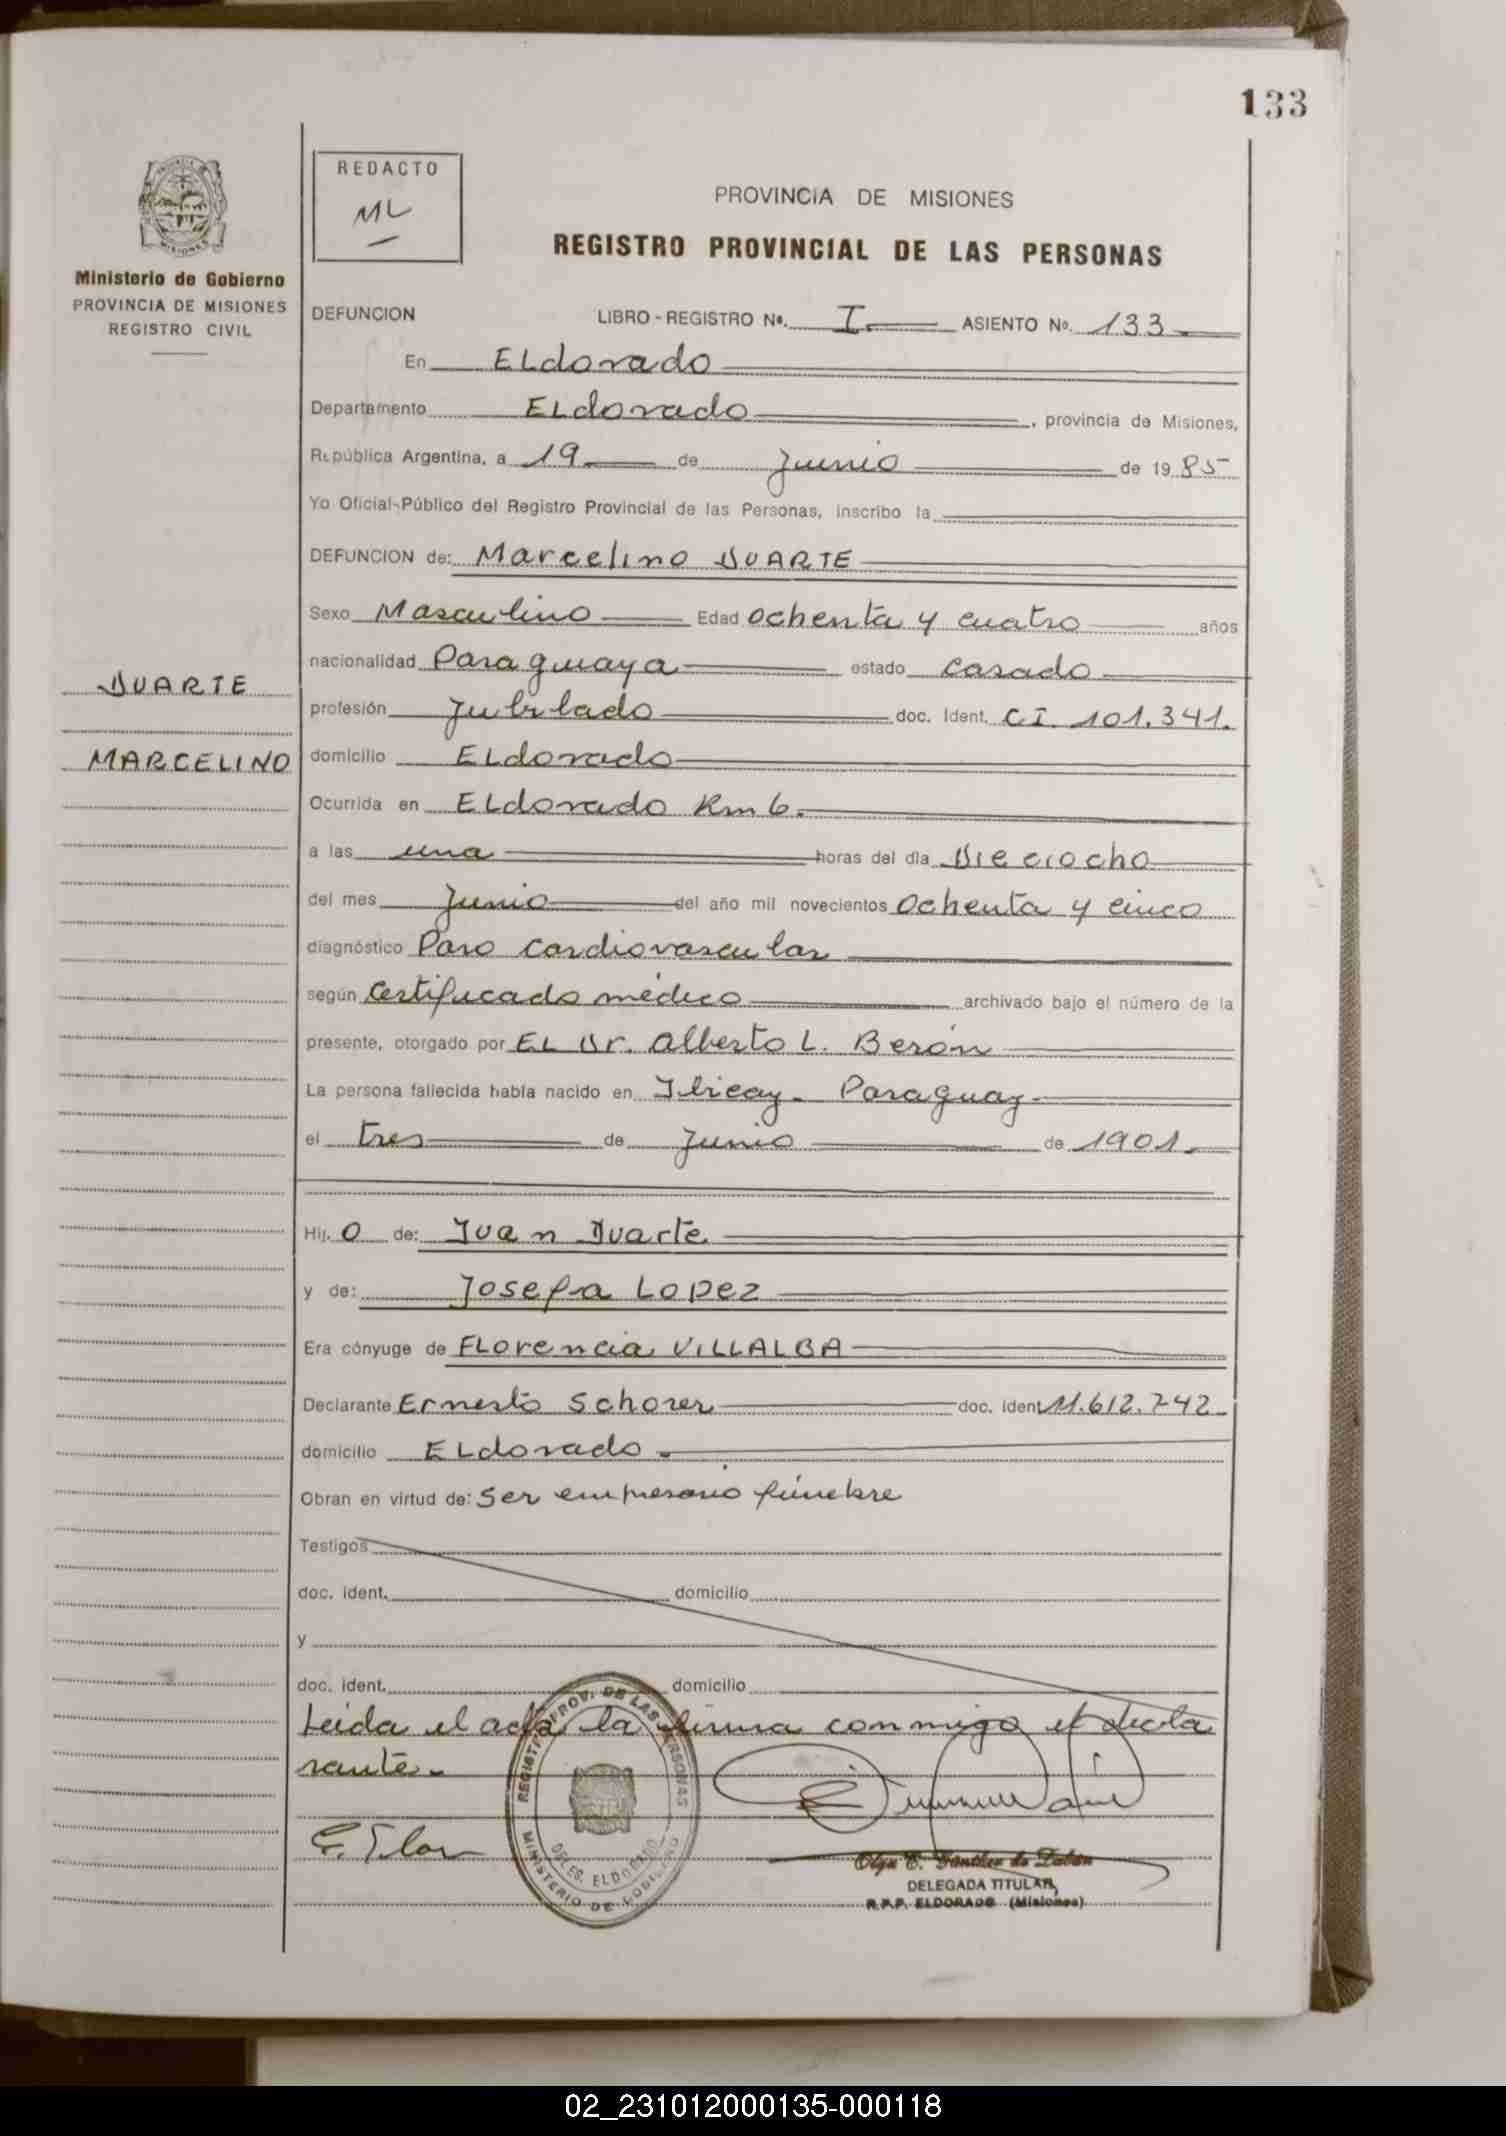 133
REDACTO
ML
PROVINCIA DE MISIONES
REGISTRO PROVINCIAL DE LAS PERSONAS
Ministerio de Gobierno
PROVINCIA DE MISIONES
REGISTRO CIVIL
DEFUNCION LIBRO - REGISTRO Nº. I. ASIENTO Nº. 133
En ELdorado
Departamento ELdorado, provincia de Misiones,
República Argentina, a 19 de Junio de 1985
Yo Oficial-Público del Registro Provincial de las Personas, inscribo la
DEFUNCION de: Marcelino DUARTE
Sexo Masculino Edad ochenta y cuatro años
nacionalidad Paraguaya estado casado
DUARTE
profesión Jubilado doc. Ident. CI. 101.341.
MARCELINO
domicilio ELdorado
Ocurrida en ELdorado Km 6.
a las una horas del día Dieciocho
del mes Junio del año mil novecientos ochenta y cinco
diagnóstico Paro cardiovascular
según certificado médico archivado bajo el número de la
presente, otorgado por EL Dr. Alberto L. Berón
La persona fallecida había nacido en Ibicay - Paraguay -
el tres de Junio de 1901.
Hij o de: Juan Duarte
y de: Josefa Lopez
Era cónyuge de FLorencia VILLALBA
Declarante Ernesto Schorer doc. iden 11.612.742
domicilio ELdorado -
Obran en virtud de: Ser empresario fúnebre
Testigos
doc. ident. domicilio
y
doc. ident. domicilio
Leida el acta la firma conmigo el decla
rante.-
REGISTRO PROV. DE LAS PERSONAS
DELEG. ELDORADO
MINISTERIO DE GOBIERNO
DELEGADA TITULAR
R.P.P. ELDORADO (Misiones)
02_231012000135-000118